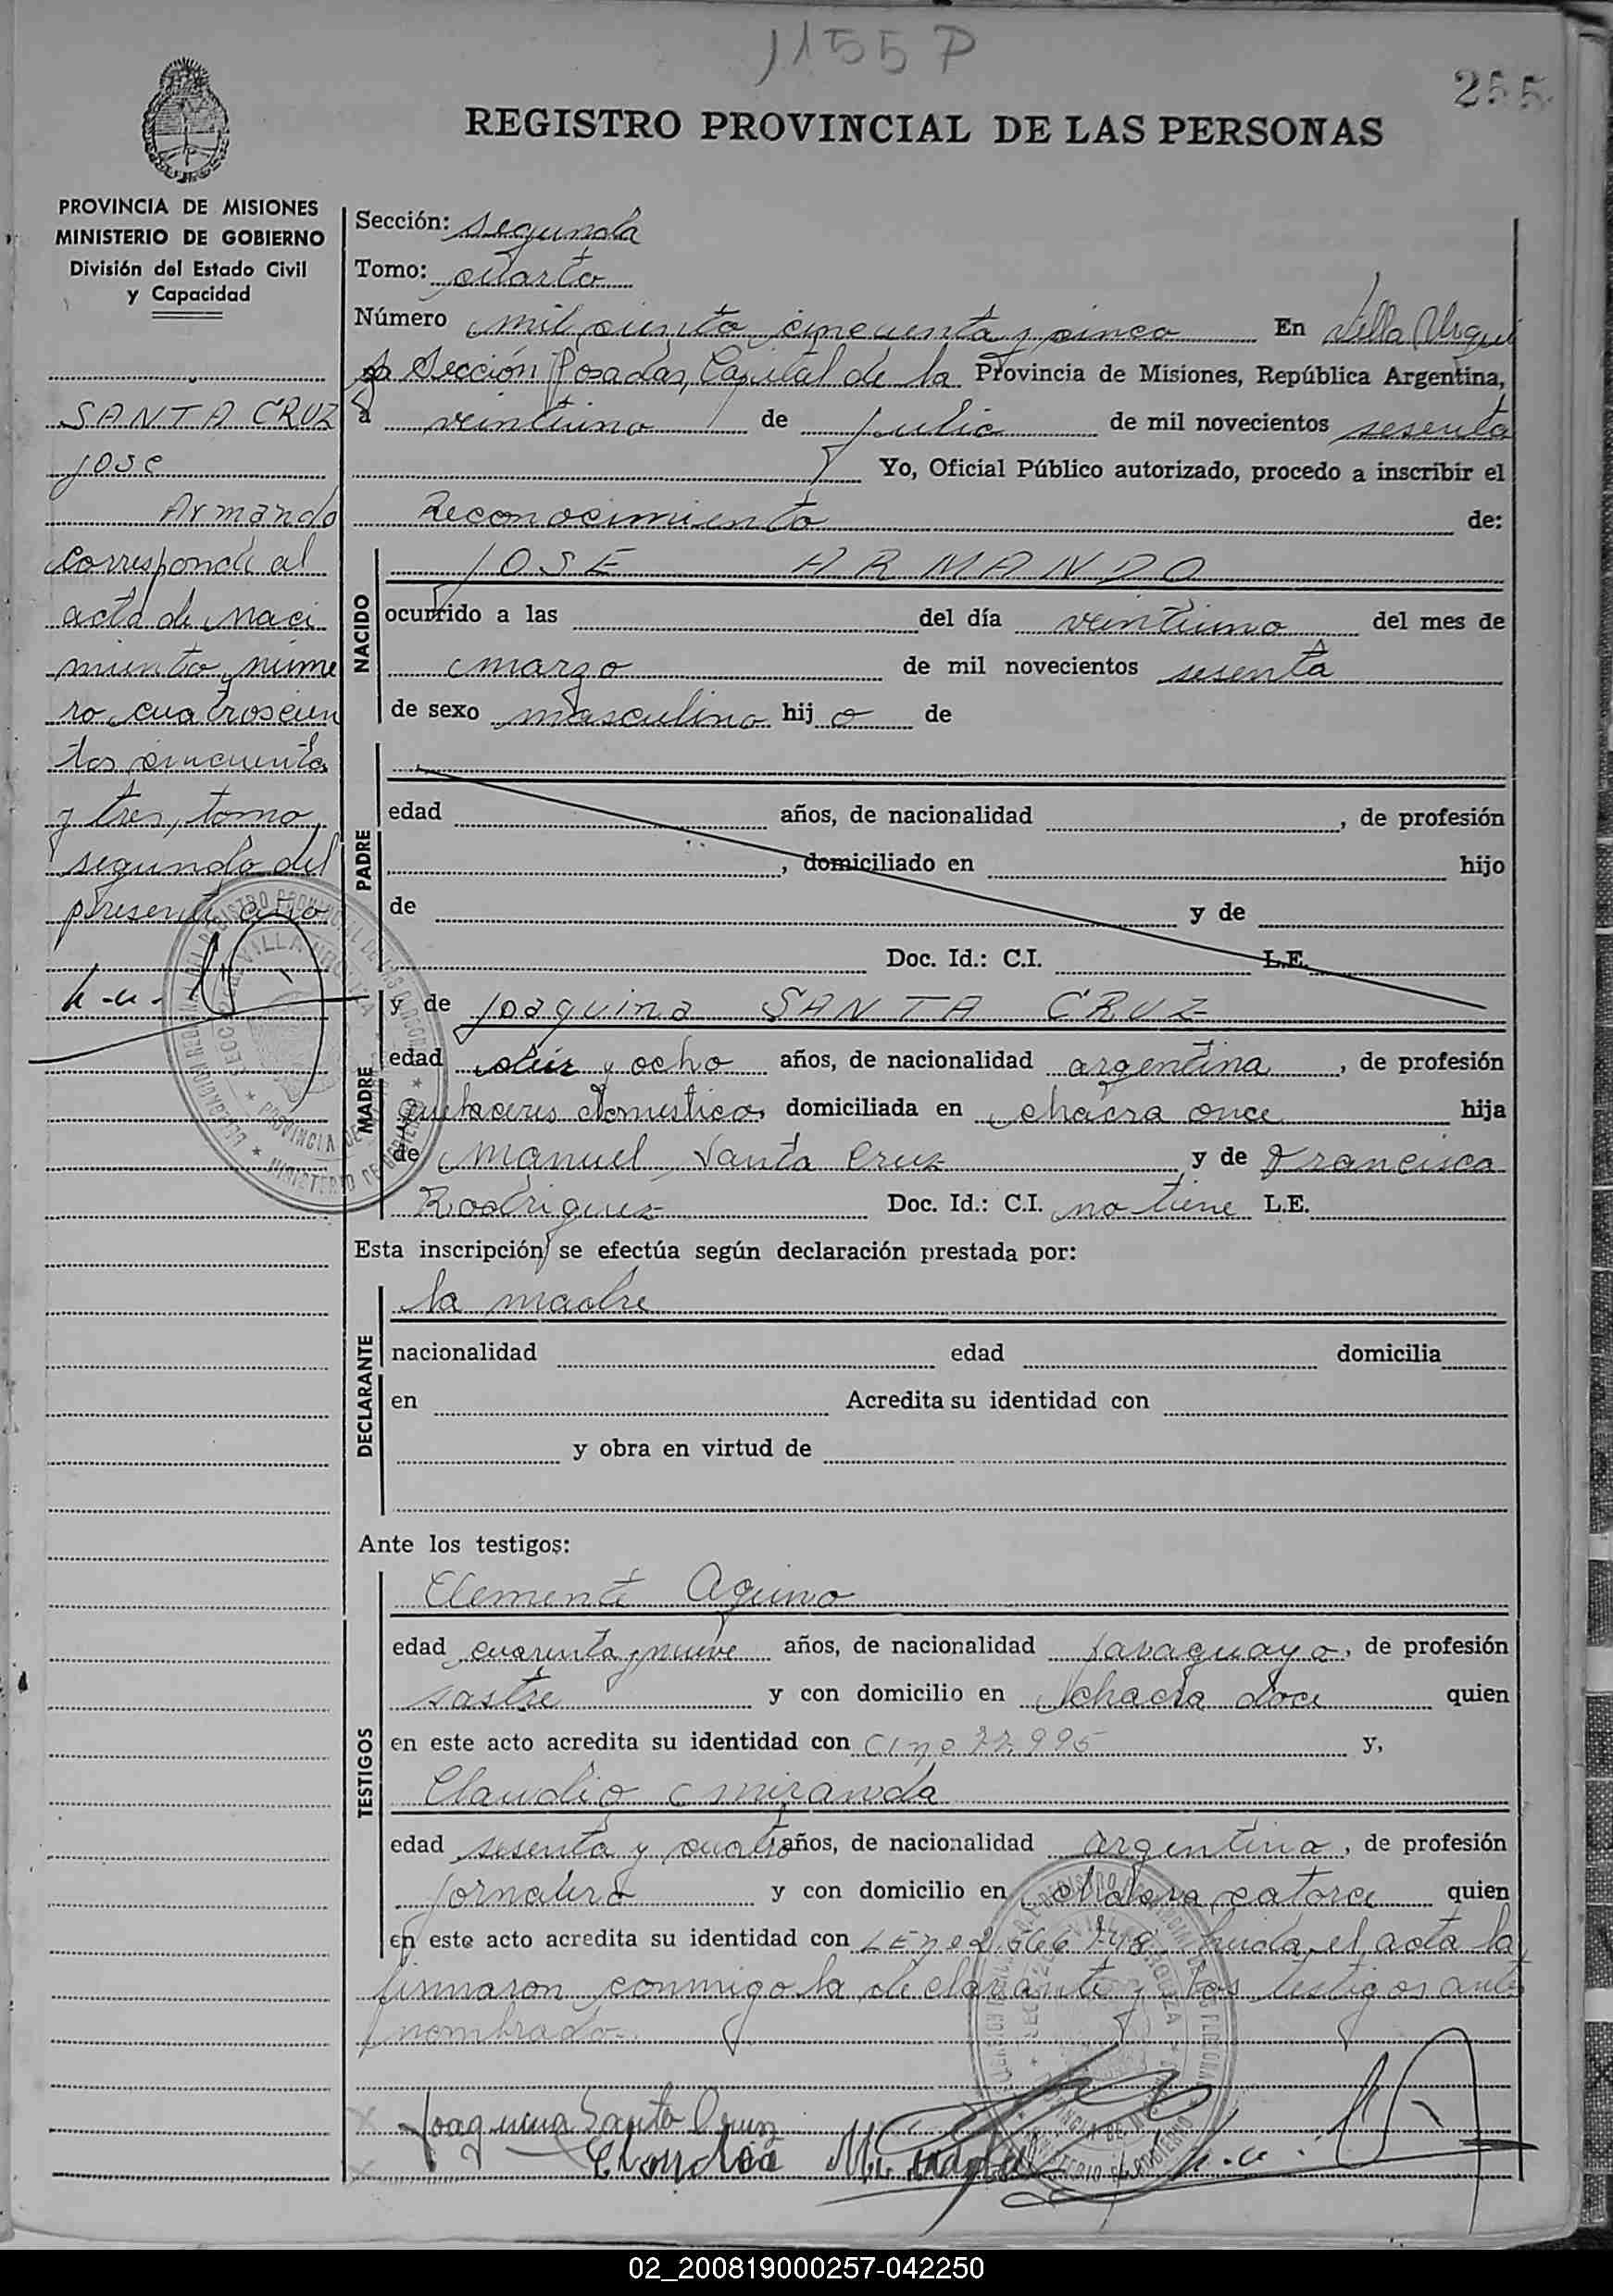 1155 P
255
REGISTRO PROVINCIAL DE LAS PERSONAS
PROVINCIA DE MISIONES
MINISTERIO DE GOBIERNO
División del Estado Civil
y Capacidad
SANTA CRUZ
José
Armando
Corresponde al
acta de naci
miento, núme
ro cuatroscien
tos cincuenta
y tres, tomo
segundo del
presente año
Sección: segunda
Tomo: cuarto
Número mil ciento cincuenta y cinco En Villa Urqui
za Sección Posadas, Capital de la Provincia de Misiones, República Argentina,
a veintiuno de julio de mil novecientos sesenta
Yo, Oficial Público autorizado, procedo a inscribir el
Reconocimiento de:
NACIDO
JOSE ARMANDO
ocurrido a las del día veintiuno del mes de
marzo de mil novecientos sesenta
de sexo masculino hij o de
PADRE
edad años, de nacionalidad , de profesión
, domiciliado en hijo
de y de
Doc. Id.: C.I. L.E.
MADRE
y de Joaquina SANTA CRUZ
edad diez y ocho años, de nacionalidad argentina, de profesión
quehaceres domesticos domiciliada en chacra once hija
de Manuel Santa Cruz y de Francisca
Rodriguez Doc. Id.: C.I. no tiene L.E.
Esta inscripción se efectúa según declaración prestada por:
DECLARANTE
la madre
nacionalidad edad domicilia
en Acredita su identidad con
y obra en virtud de
Ante los testigos:
TESTIGOS
Clemente Aquino
edad cuarenta y nueve años, de nacionalidad paraguayo, de profesión
sastre y con domicilio en chacra doce quien
en este acto acredita su identidad con y,
Claudio Miranda
edad sesenta y cuatro años, de nacionalidad argentina, de profesión
jornalero y con domicilio en chacra catorce quien
en este acto acredita su identidad con leida el acta la
firmaron conmigo la declarante y los testigos ante
nombrado.
Joaquina Santa Cruz
Claudio Miranda
02_200819000257-042250